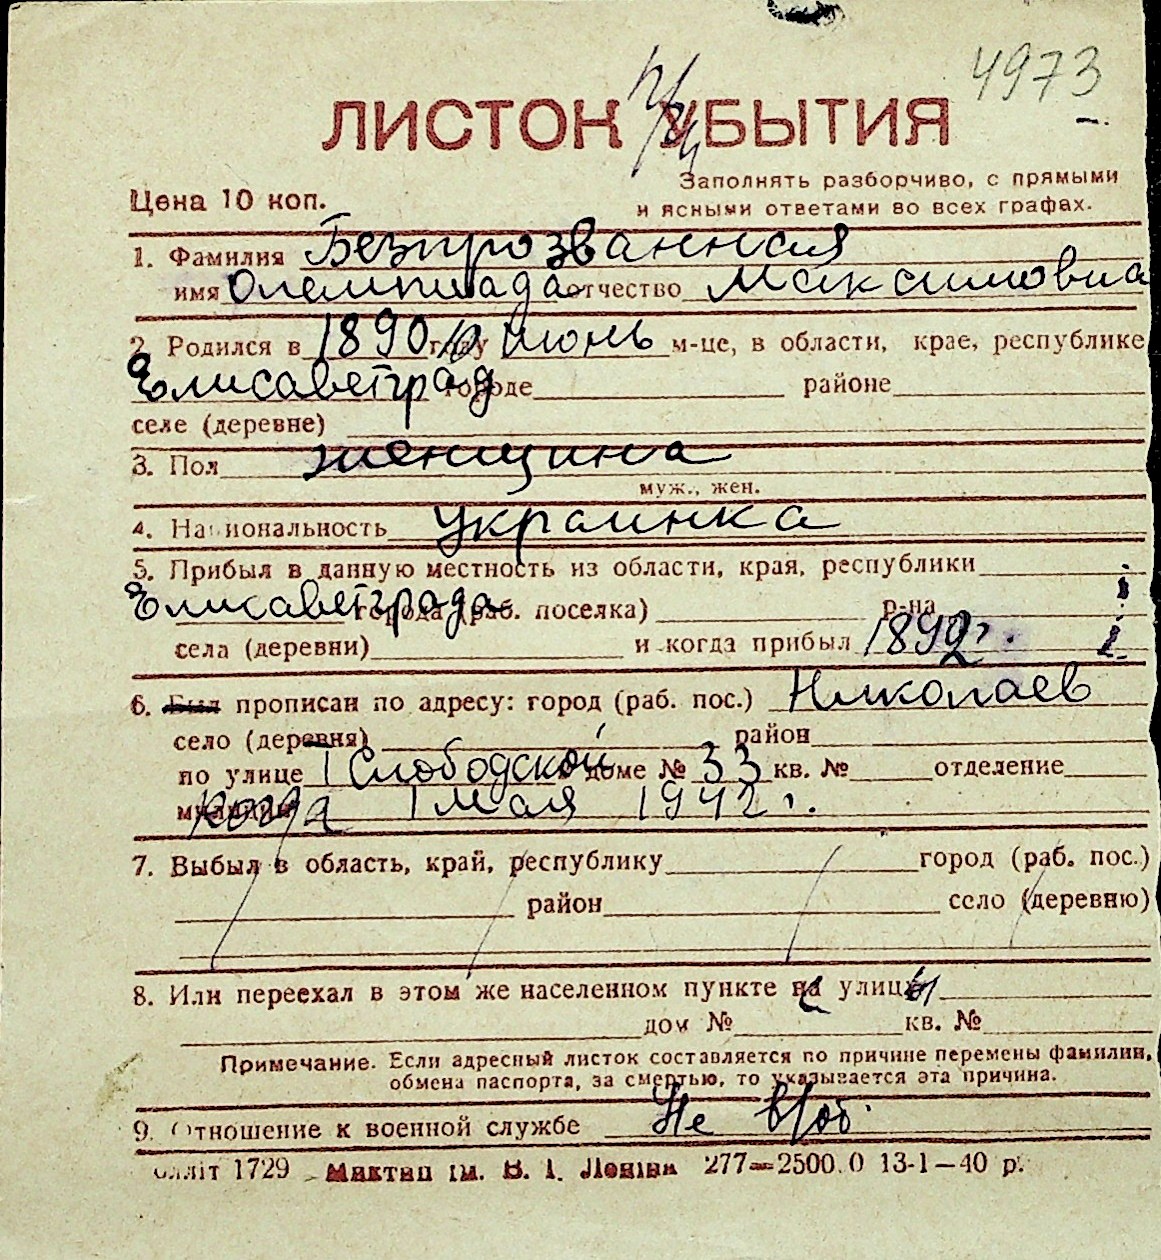 4973
ЛИСТОК УБЫТИЯ
Заполнять разборчиво, с прямыми
Цена 10 коп.
и ясными ответами во всех графах.
1. Фамилия Безпрозванная
имя Олемпиада отчество Максимовна
2. Родился в 1890 году июнь м-це, в области, крае, республике
Елисаветград городе районе
селе (деревне)
3. Пол женщина
муж., жен.
4. Национальность Украинка
5. Прибыл в данную местность из области, края, республики
Елисаветграда города (раб. поселка) р-на
села (деревни) и когда прибыл 1892 г.
6. Был прописан по адресу: город (раб. пос.) Николаев
село (деревня) район
по улице I Слободской доме № 33 кв. № отделение
милиции когда 1 мая 1942 г.
7. Выбыл в область, край, республику город (раб. пос.)
район село (деревню)
8. Или переехал в этом же населенном пункте с улицы
дом № кв. №
Примечание. Если адресный листок составляется по причине перемены фамилии,
обмена паспорта, за смертью, то указывается эта причина.
9. Отношение к военной службе Не в/об.
1729 Миктип ім. В. І. Леніна 277—2500.0 13-1—40 р.